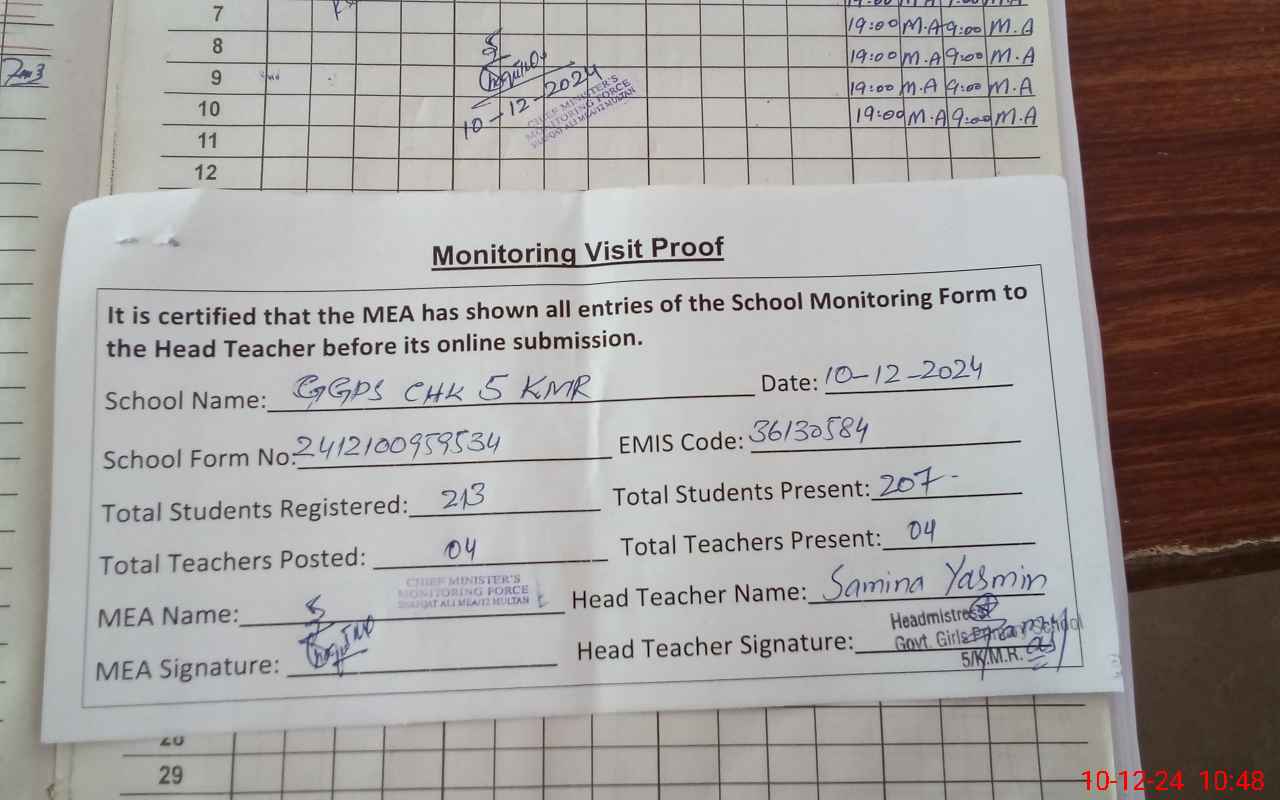 7
19:00 M.A 9:00 M.A
8
19:00 M.A 9:00 M.A
9
19:00 M.A 9:00 M.A
10
19:00 M.A 9:00 M.A
10-12-2024
CHIEF MINISTER'S
MONITORING FORCE
11
12
Monitoring Visit Proof
It is certified that the MEA has shown all entries of the School Monitoring Form to
the Head Teacher before its online submission.
School Name: GGPS CHK 5 KMR Date: 10-12-2024
School Form No: 2412100959534 EMIS Code: 36130584
Total Students Registered: 213 Total Students Present: 207-
Total Teachers Posted: 04 Total Teachers Present: 04
CHIEF MINISTER'S
MONITORING FORCE
MEA Name: Head Teacher Name: Samina Yasmin
MEA Signature: Head Teacher Signature:
Headmistress
Govt. Girls Primary School
5/K.M.R.
29
10-12-24 10:48